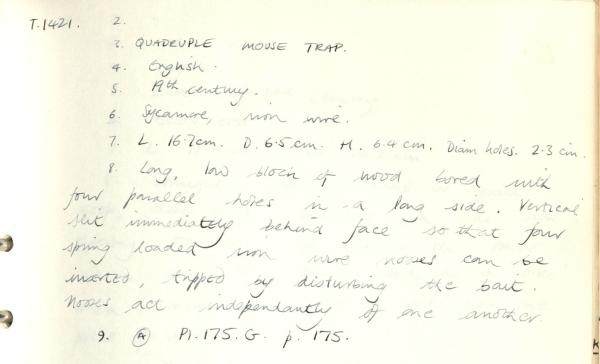 T.1421. 2.
3. QUADRUPLE MOUSE TRAP.
4. English.
5. 19th century.
6. Sycamore, iron wire.
7. L. 16.7cm. D. 6.5.cm. H. 6.4 cm. Diam holes. 2.3 cm.
8. Long, low block of wood bored with
four parallel holes in a long side. Vertical
slit immediately behind face so that four
spring loaded iron wire nooses can be
inserted, tripped by disturbing the bait.
Nooses act independantly of one another.
9. (A) Pl. 175. G. p. 175.
K